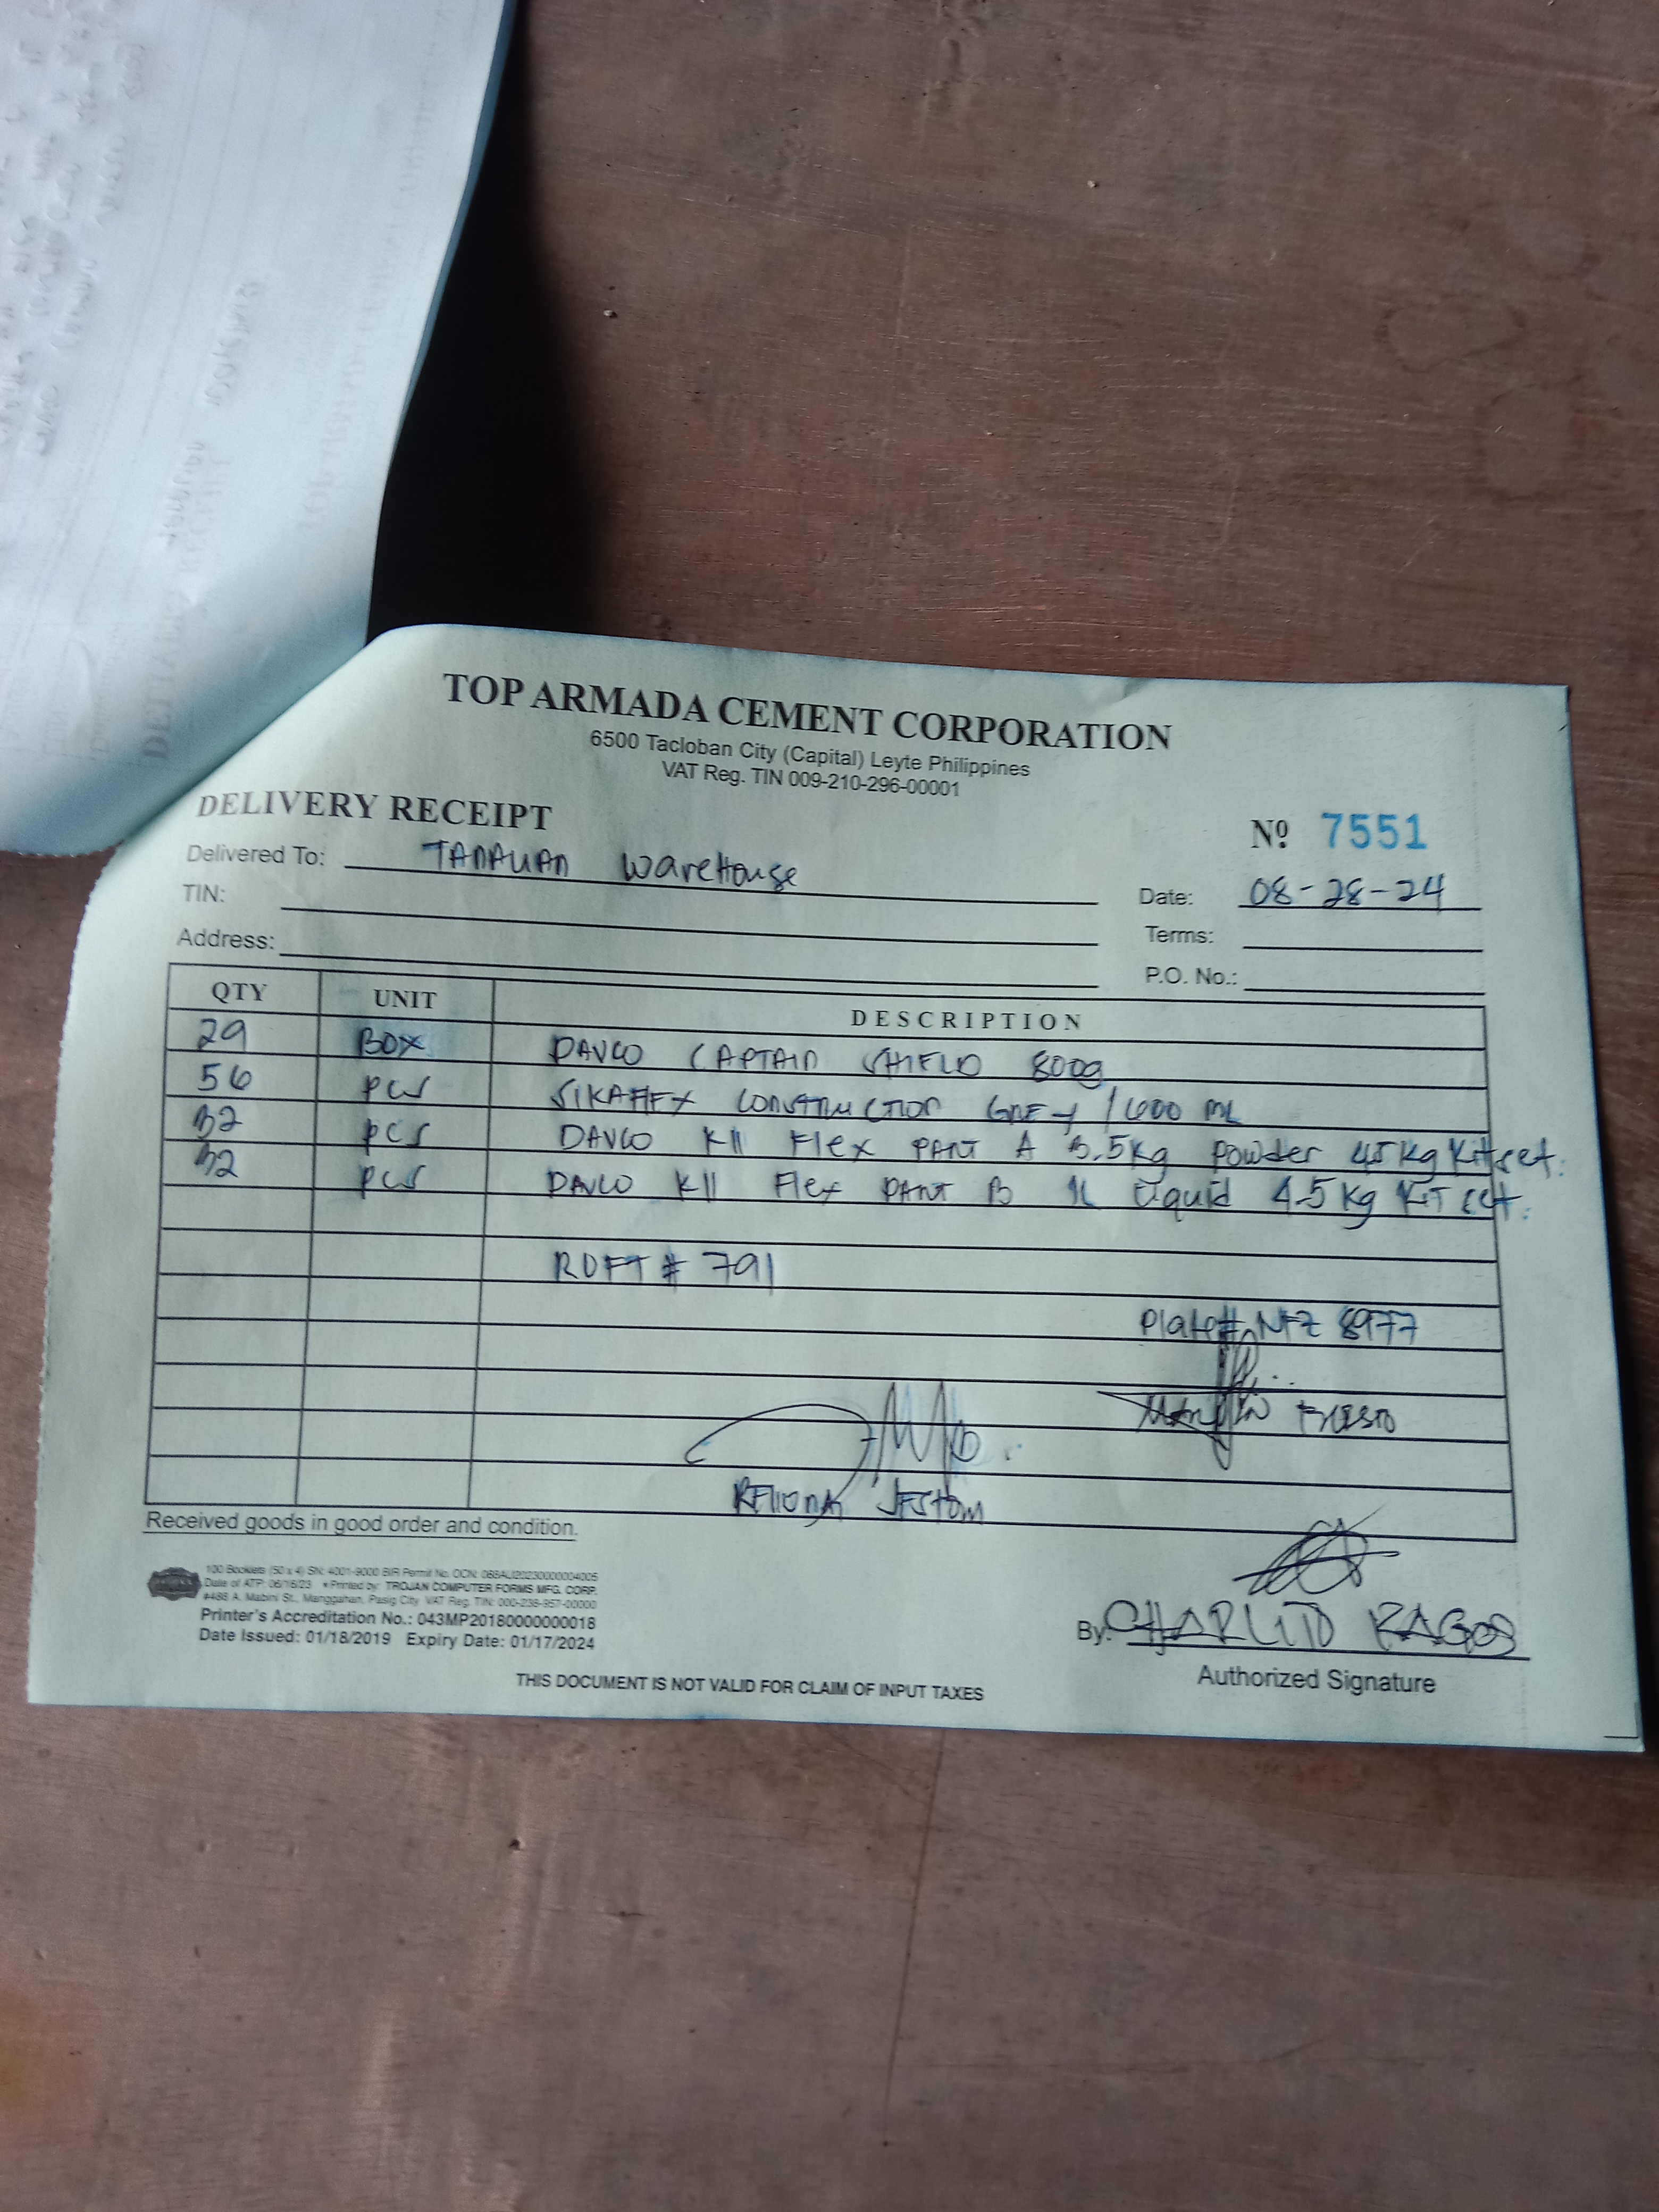 TOP ARMADA CEMENT CORPORATION
6500 Tacloban City (Capital) Leyte Philippines
VAT Reg. TIN 009-210-296-00001
DELIVERY RECEIPT
Nº 7551
Delivered To: TANAUAN WareHouse
Date: 08-28-24
TIN:
Terms:
Address:
P.O. No.:
QTY UNIT DESCRIPTION
29 BOX DAVCO CAPTAIN SHIELD 800g
56 pcs SIKAFLEX CONSTRUCTION GREY / 600 ML
32 pcs DAVCO K11 Flex PART A 3.5Kg Powder 4.5Kg Kit set.
32 pcs DAVCO K11 Flex PART B 1L Liquid 4.5Kg KIT set.
RDFT # 791
Plate# NFZ 8977
Received goods in good order and condition.
100 Booklets (50 x 4) SN: 4001-9000 BIR Permit No. OCN: 088AU20230000004005
Date of ATP: 06/16/23 • Printed by: TROJAN COMPUTER FORMS MFG. CORP.
#488 A. Mabini St., Manggahan, Pasig City VAT Reg. TIN: 000-238-957-00000
Printer's Accreditation No.: 043MP20180000000018
Date Issued: 01/18/2019 Expiry Date: 01/17/2024
By: CHARLITO RAGOS
Authorized Signature
THIS DOCUMENT IS NOT VALID FOR CLAIM OF INPUT TAXES